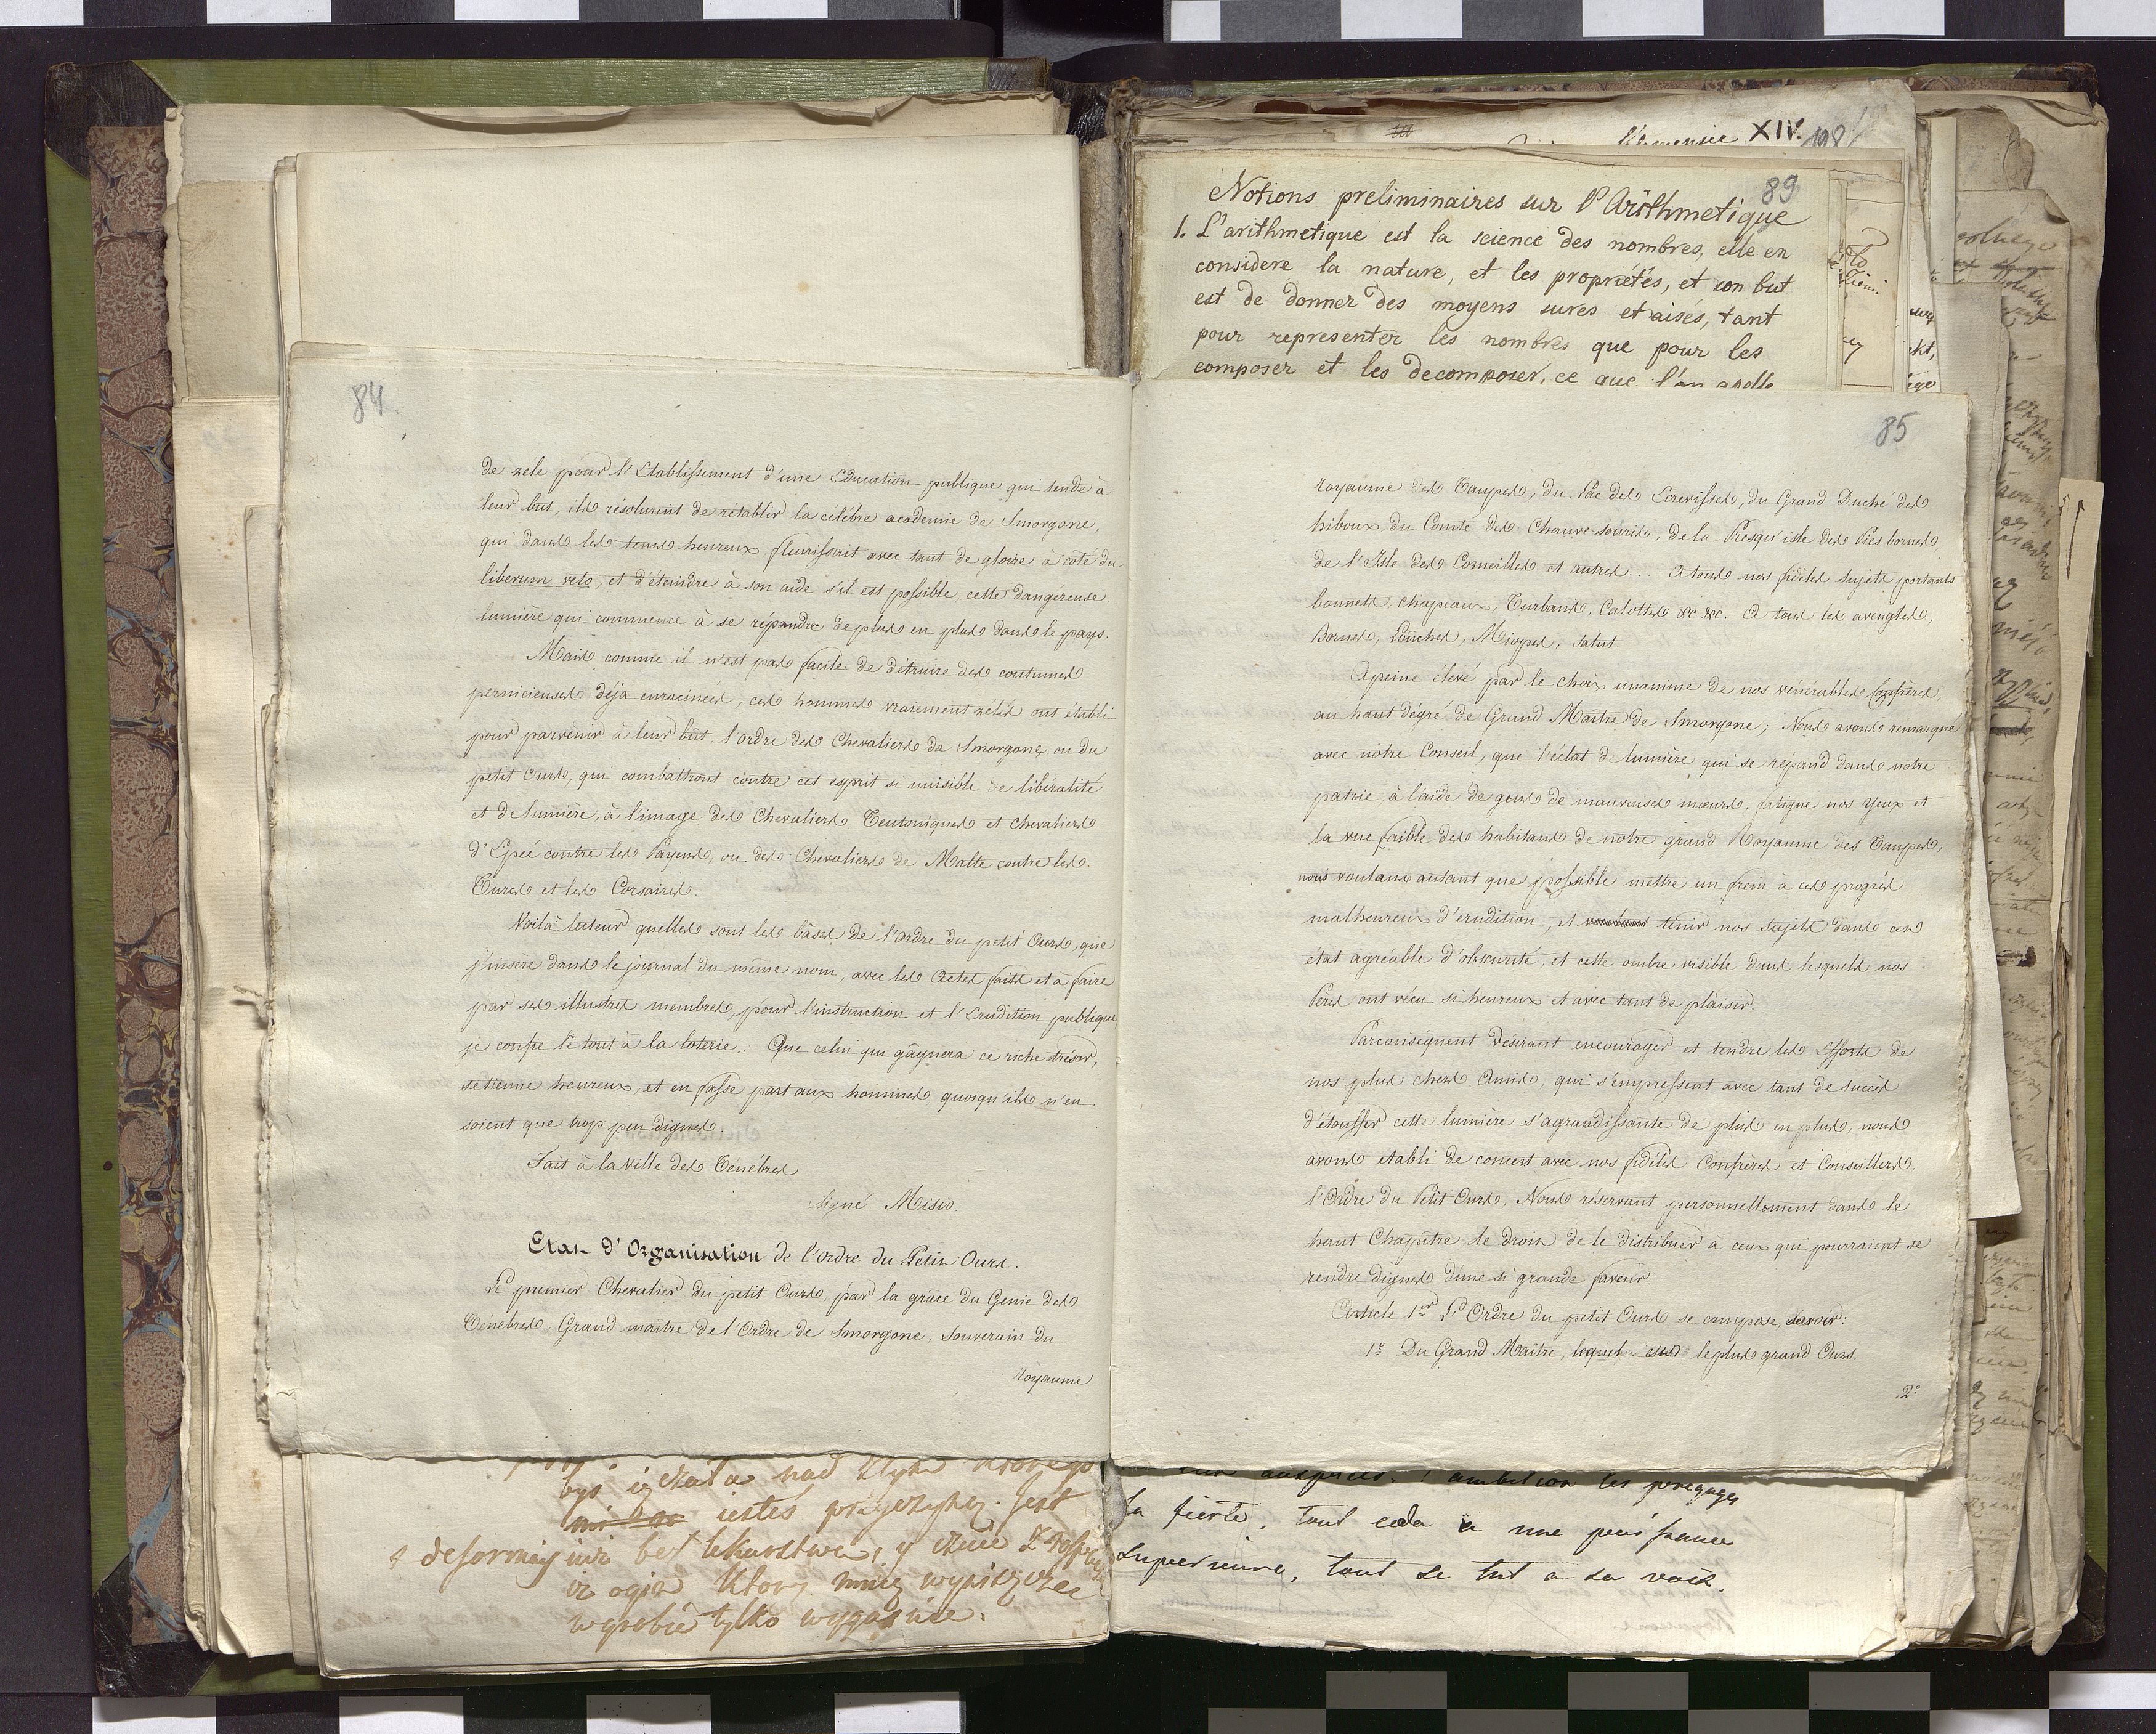 84
de zele pour l'Etablissement d'une Education publique qui tende à
leur but, ils résolurent de rétablir la celébre academie de Smorgone,
qui dans les tems heureux fleurissait avec tant de gloire à coté du
liberum veto, et d'éteindre à son aide s'il est possible, cette dangereuse
lumière qui commence à se répandre de plus en plus dans le pays.
Mais comme il n'est pas facile de détruire des coutumes
pernicieuses déja enracinées, ces hommes vraiement zélés ont établi
pour parvenir à leur but, l'ordre des Chevaliers de Smorgone, ou du
petit Ours, qui combattront contre cet esprit si nuisible de libéralité
et de lumière, à l'image des Chevaliers Teutoniques et chevaliers
d'Epeé contre les Payens, ou des Chevaliers de Malte contre les
Turcs et les Corsaires.
Voilà lecteur quelles sont les bâses de l'ordre du petit Ours, que
j'insère dans le journal du même nom, avec les Actes faits et à faire
par ses illustres membres, pour l'instruction et l'Erudition publique
je confie le tout à la loterie.. Que celui qui gâgnera ce riche trésor,
se tienne heureux, et en fasse part aux hommes quoiqu'ils n'en
soient que trop peu dignes.
Fait à la Ville des Ténébres
Signé Misio.
Etat d'Organisation de l'ordre du Petit Ours.
Le premier Chevalier du petit Ours, par la grace du Genie des
Ténébres, Grand maitre de l'Ordre de Smorgone, Souverain du
Royaume
XIV.
198
89
Notions preliminaires sur l'Arithmetique
1. L'arithmetique est la science des nombres, elle en
considere la nature, et les propriétés, et son but
est de donner des moyens sures et aisés, tant
pour representer les nombres que pour les
composer et les decomposer, ce que l'on apelle
85
royaume des Taupes, du Lac des Ecrevisses, du Grand Duché des
hiboux du Comté des Chauve-souris, de la Presqu'isle des Pies bornes,
de l'Isle des Corneilles et autres... A tous nos fidéles Sujets portants
bonnets, chapeaux, Turbans, Calottes &c &c. A tous les aveugles,
Bornes, Louches, Miopes, Salut.
Apeine élevé par le choix unanime de nos vénérables Confrères,
au haut dégré de Grand Maitre de Smorgone; Nous avons remarqué
avec notre Conseil, que l'éclat de lumière qui se répand dans notre
patrie, à l'aide de gens de mauvaises mœurs, fatigue nos yeux et
la vue faible des habitans de notre grand Royaume des Taupes,
nous voulans autant que possible mettre un frein à ces progrés
malheureux d'erudition, et tenir nos sujets dans cet
état agréable d'obscurité, et cette ombre visible dans lesquels nos
Péres ont vécu si heureux et avec tant de plaisir.
Parconséquent désirant encourager et tendre les Efforts de
nos plus chers Amis, qui s'empressent avec tant de Succès
d'étouffer cette lumière s'agrandissante de plus en plus, nous
avons etabli de concert avec nos fidéles Confrères et Conseillers
l'Ordre du Petit Ours, Nous réservant personnellement dans le
haut Chapitre le droit de le distribuer à ceux qui pourraient se
rendre dignes d'une si grande faveur
Article 1er L'Ordre du petit Ours se compose, savoir:
1º Du Grand Maitre, lequel est le plus grand Ours.
2º
nad
iestes przyczyną. Jest
bez lekarstwa, y
wygrobie tylko wygasnie.
ambition les prejuges
la fierté, tout ceda a une puissance
superieure, tout se tut a sa voix.